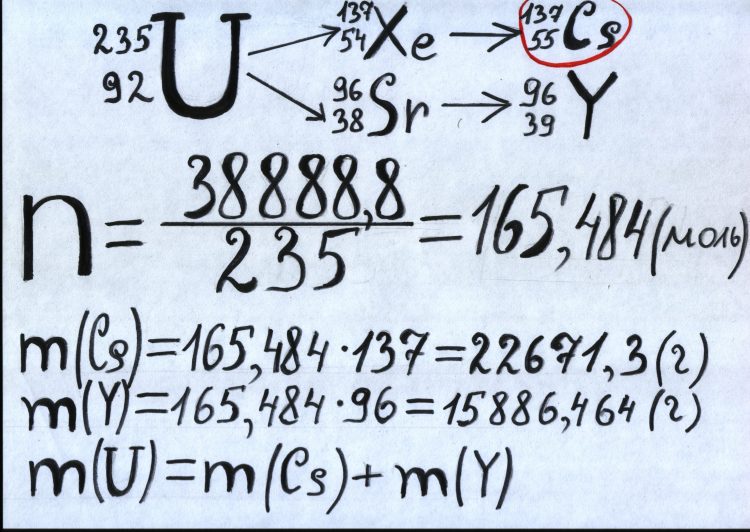 ²³⁵₉₂U → ¹³⁷₅₄Xe → ¹³⁷₅₅Cs
→ ⁹⁶₃₈Sr → ⁹⁶₃₉Y
n = 38888,8 / 235 = 165,484 (моль)
m(Cs) = 165,484 · 137 = 22671,3 (г)
m(Y) = 165,484 · 96 = 15886,464 (г)
m(U) = m(Cs) + m(Y)